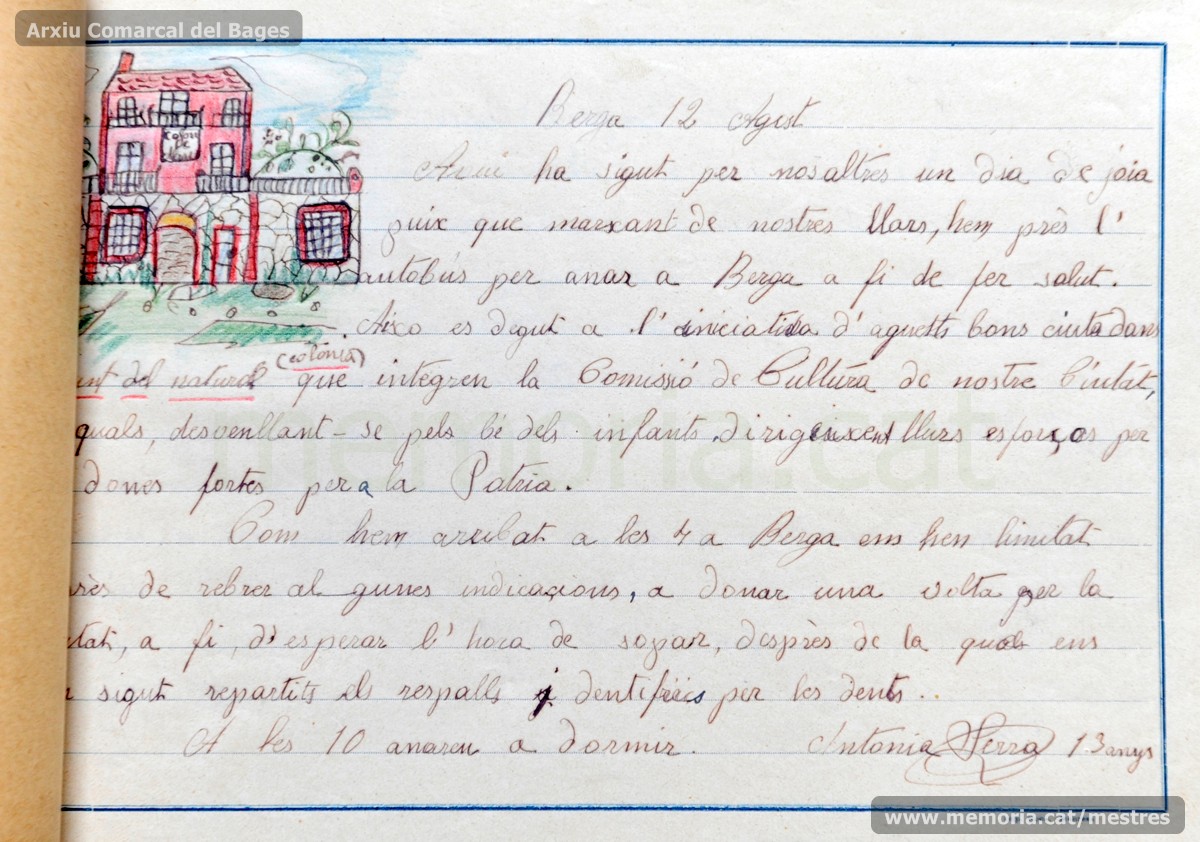 Arxiu Comarcal del Bages
Berga 12 Agost
Avui ha sigut per nosaltres un dia de joia
puix que marxant de nostres llars, hem près l'
autobús per anar a Berga a fi de fer salut.
Aixo es degut a l'iniciativa d'aquetts bons ciutadans
(colonia)
del natural que integren la Comissió de Cultura de nostre Ciutat,
quals, desvenllant-se pels bé dels infants, dirigeixent llurs esforços per
dones fortes per a la Patria.
Com hem arribat a les 7 a Berga ens hem limitat
de rebrer al gunes indicaçions, a donar una volta per la
a fi, d'esperar l'hora de sopar, desprès de la qual ens
sigut repartits els respalls i dentifricis per les dents..
A les 10 anaren a dormir. Antonia Serra 13 anys
memoria.cat
www.memoria.cat/mestres